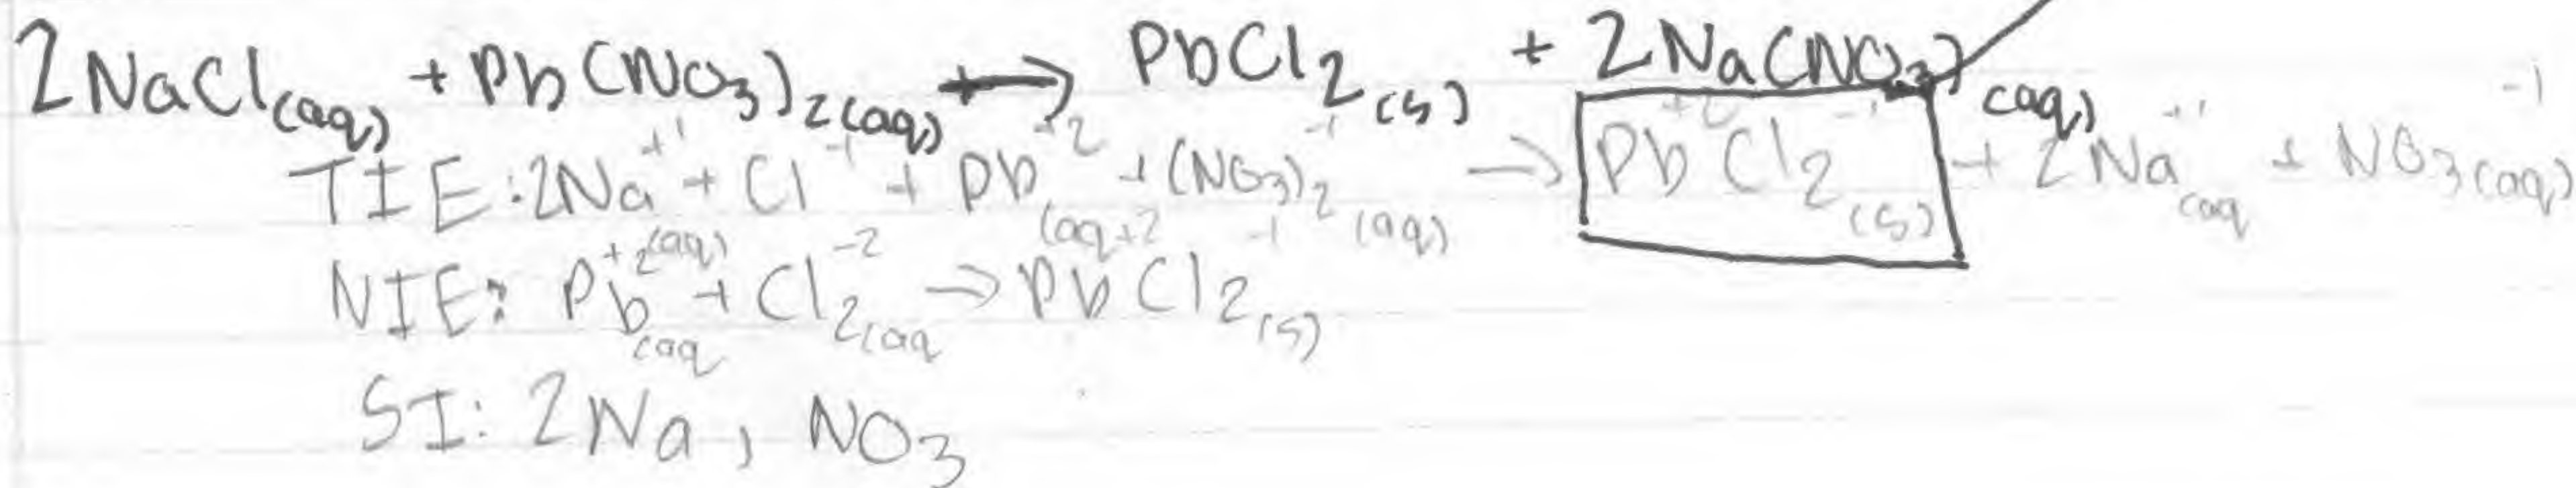 2NaCl(aq) + Pb(NO3)2(aq) → PbCl2(s) + 2Na(NO3)(aq)
TIE: 2Na+1 + Cl-1 + Pb+2(aq) + (NO3)2-1(aq) → Pb+2Cl2-1(s) + 2Na+1(aq + NO3-1(aq)
NIE: Pb+2(aq) + Cl2-2(aq → PbCl2(s)
SI: 2Na, NO3